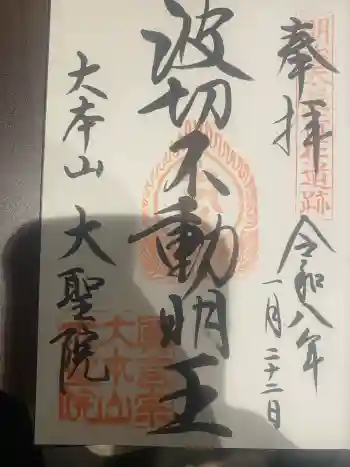 奉拝
令和八年
一月二十二日
波切不動明王
大本山 大聖院
真言宗
大本山
大聖院